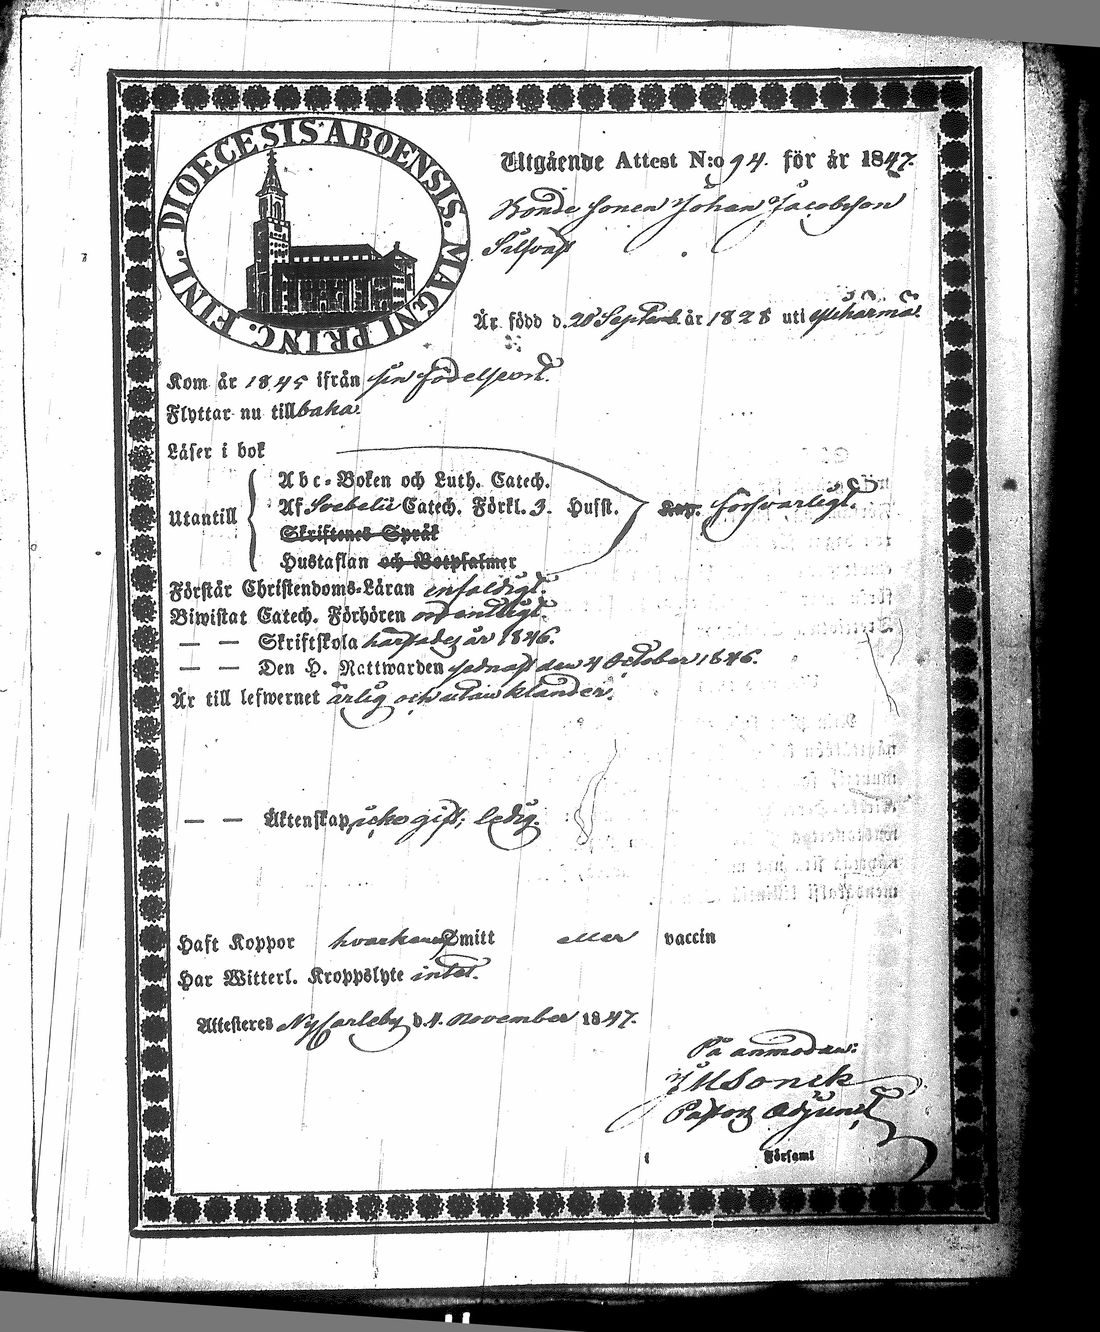 DIOECESIS ABOENSIS. MAGNI PRINC. FINL.
Utgående Attest N:o 94. för år 1847.
Bonde sonen Johan Jacobsson
Silfvast
Är född d. 20 Septemb. år 1828 uti Ylihärmä.
Kom år 1845 ifrån sin födelseort.
Flyttar nu tillbaka.
Läser i bok
Abc-Boken och Luth. Catech.
Utantill Af Svebelii Catech. Förkl. 3. Husst. försvarligt.
Skriftenes Språk
Hustaflan och Botpsalmer
Förstår Christendoms-Läran enfaldigt.
Biwistat Catech. Förhören ordentligt.
— — Skriftskola härstädes år 1846.
— — Den H. Nattwarden sednast den 4 October 1846.
Är till lefwernet ärlig och utan klander.
— — Äktenskap icke gift; ledig.
Haft Koppor hvarken Smitt eller vaccin
Har Witterl. Kroppslyte intet.
Attesteres NyCarleby d. 4. November 1847.
På anmodan:
Pastors Adjunct
Församl